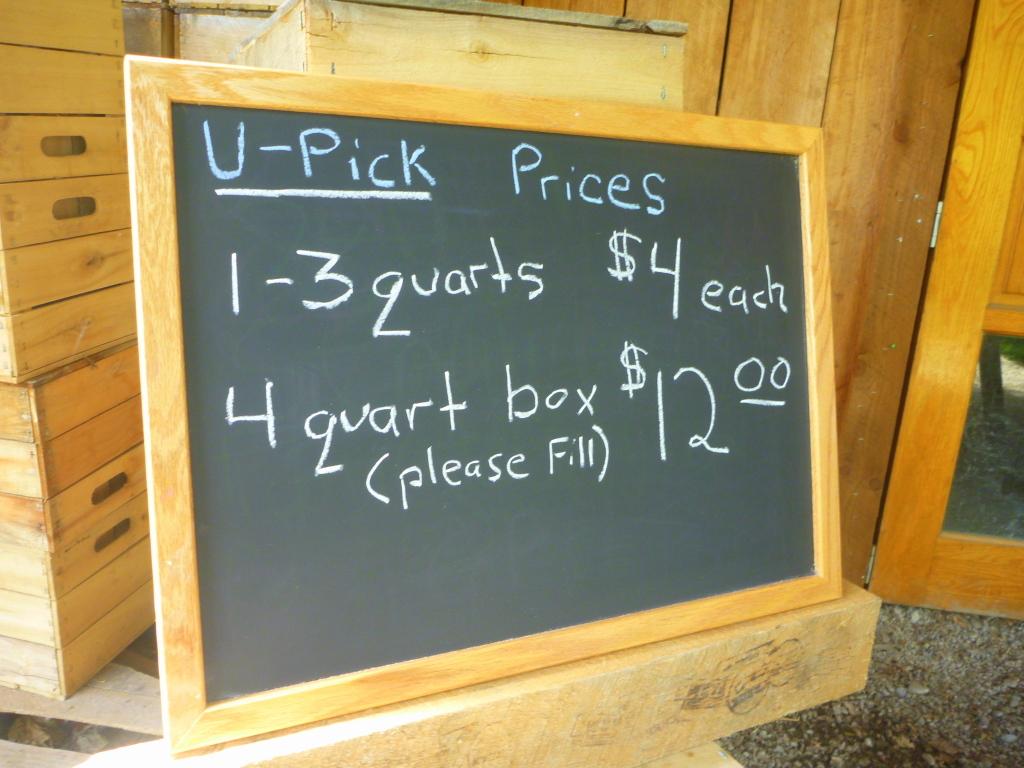 U-Pick Prices
1-3 quarts $4 each
4 quart box $12.00
(please Fill)